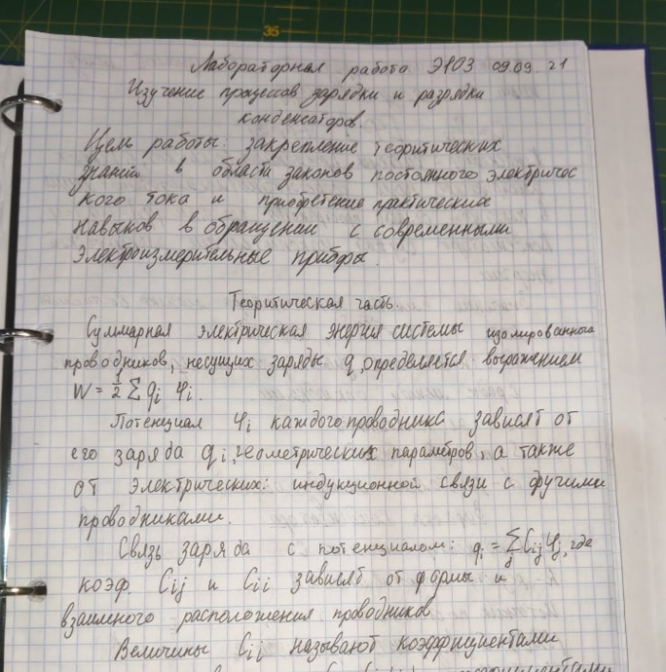 35
Лабораторная работа Э103 09.09.21
Изучение процессов зарядки и разрядки
конденсаторов.
Цель работы: закрепление теоритических
знаний в области законов постоянного электричес
кого тока и приобретение практических
навыков в обращении с современными
электроизмерительные приборы.
Теоритическая часть.
Суммарная электрическая энергия системы изолированных
проводников, несущих заряды q, определяется выражением
W = 1/2 Σ qi φi.
Потенциал φi каждого проводника зависят от
его заряда qi, геометрических параметров, а также
от электрических: индукционной связи с другими
проводниками.
Связь заряда с потенциалом: qi = Σj Cij φj, где
коэф. Cij и Cii зависят от формы и
взаимного расположения проводников
Величины Cij называют коэффициентами